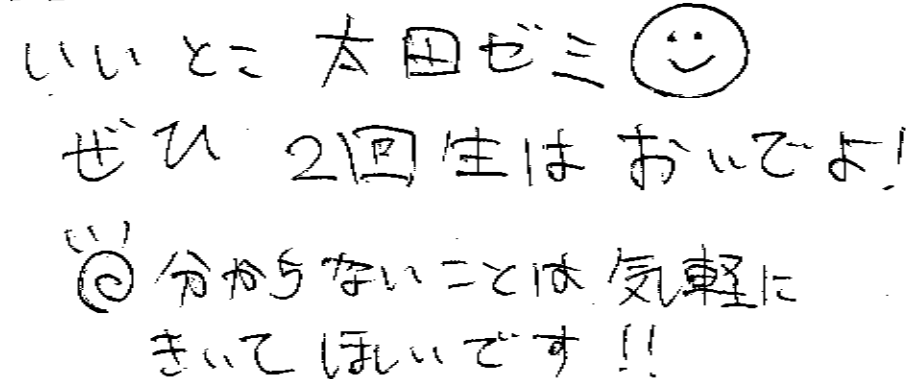 いいとこ 太田ゼミ
ぜひ 2回生は おいでよ!
分からないことは 気軽に
きいて ほしいです!!